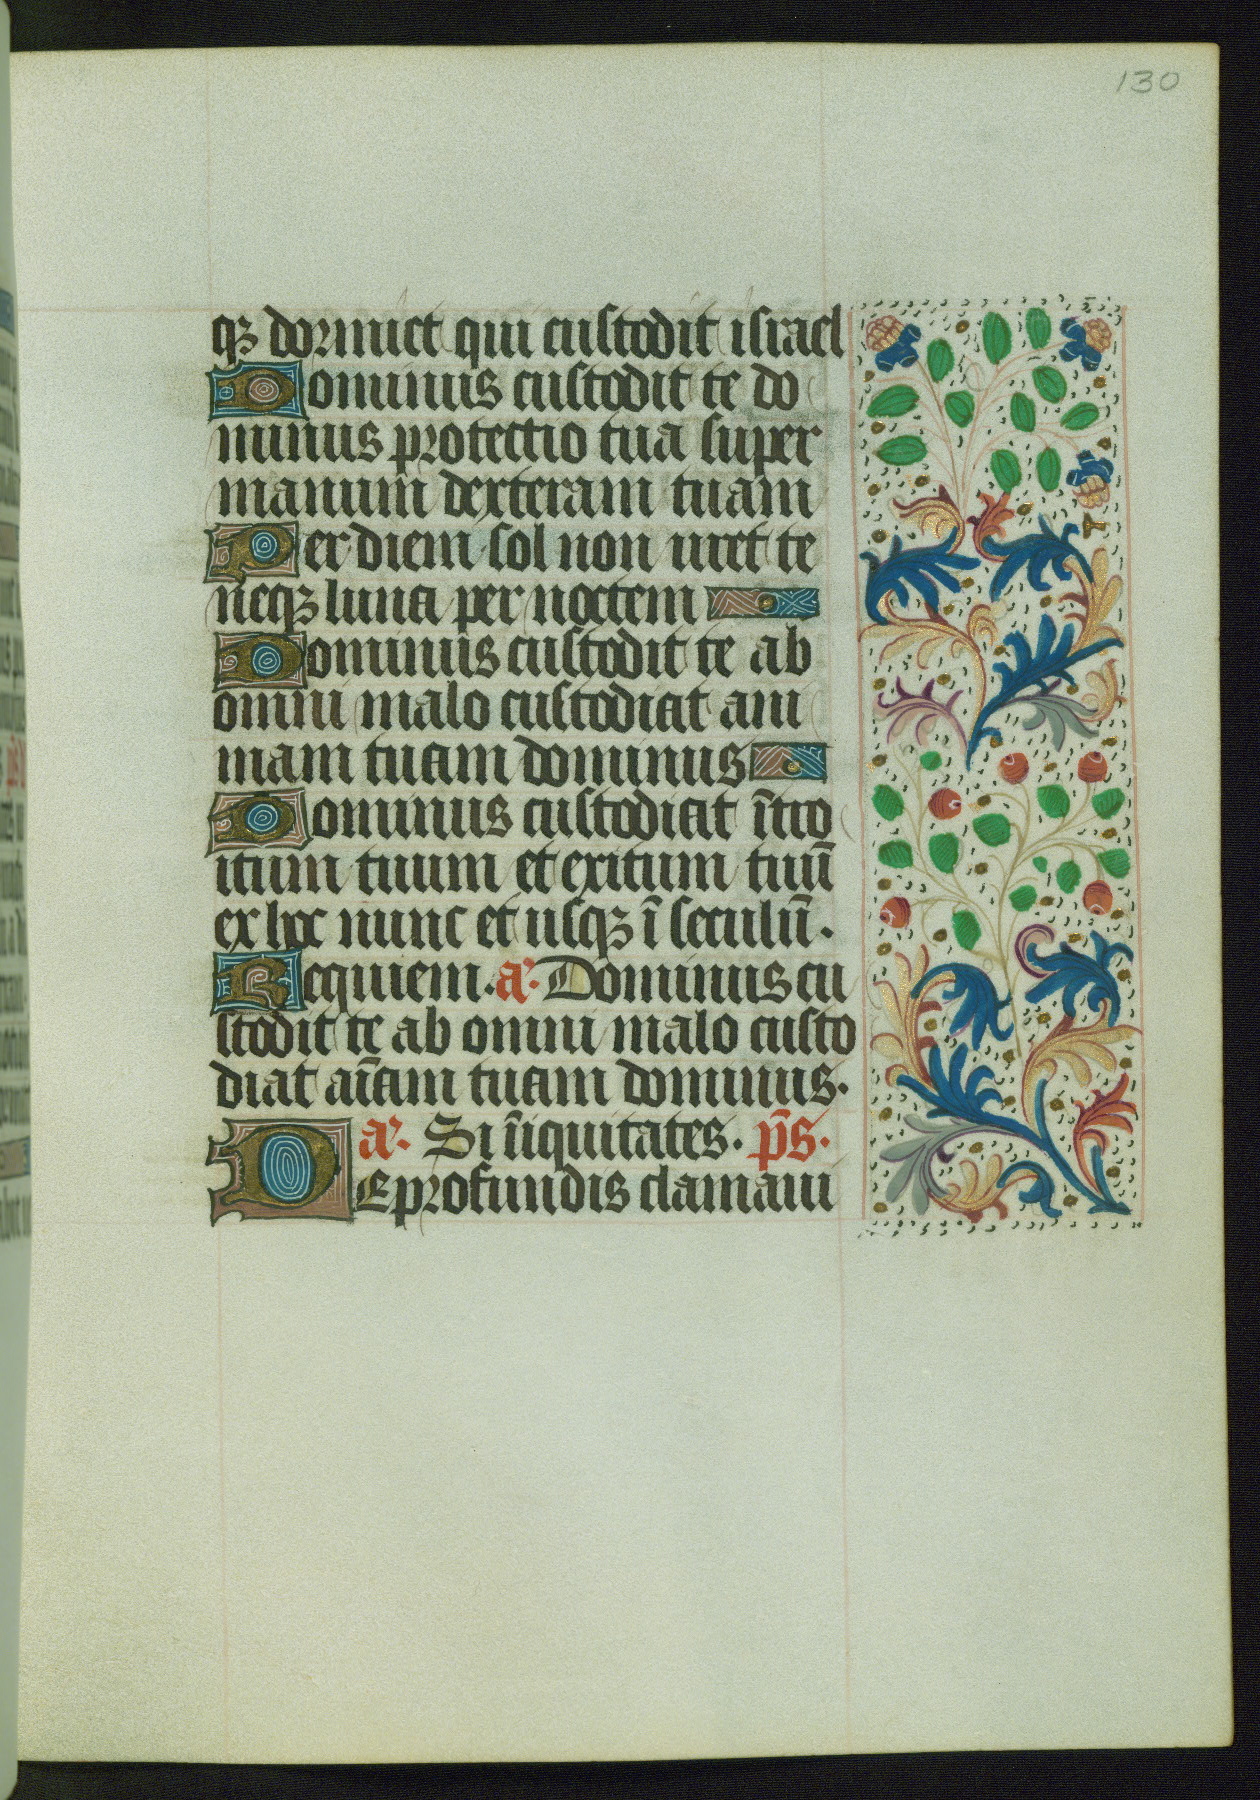 130
qꝫ dormiet qui custodit israel
Dominus custodit te do
minus protectio tua super
manum dexteram tuam
Per diem sol non uret te
neqꝫ luna per noctem
Dominus custodit te ab
omni malo custodiat ani
mam tuam dominus
Dominus custodiat ītro
itum tuum et exitum tuū
ex hoc nunc et usqꝫ ī seculū.
Requiem. a᷑. Dominus cu
stodit te ab omni malo custo
diat aīam tuam dominus.
a᷑. Si īiquitates. p̄s.
De profundis clamaui